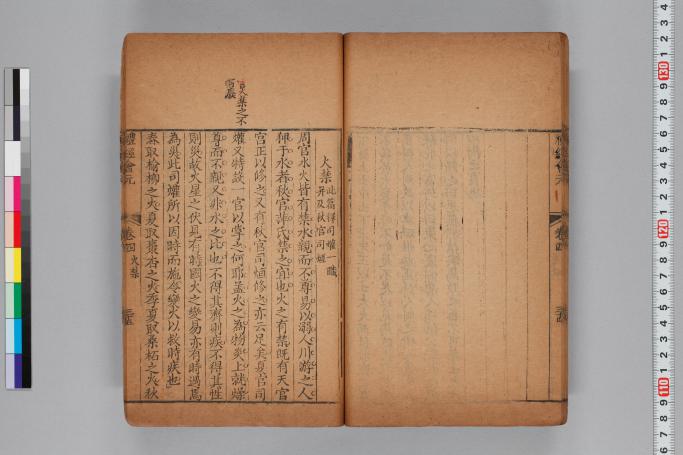 禮經會元
卷四
火禁
此篇得司爟一職
并及秋官司烜
周官水火皆有禁水親而不尊易以溺人川游之人
與于水者秋官萍氏禁之宜也火之有禁既有天官
宮正以修之又有秋官司烜修之亦云足矣夏官司
爟又特設一官以掌之何耶蓋火之為物炎上就燥
尊而不親又非水之比也不得其齊則疾不得其性
則災故火星之伏見有時國火之變易亦有時過焉
為災此司爟所以因時而施令變火以救時疾也
春取榆柳之火夏取棗杏之火季夏取桑柘之火秋
火禁之不
可嚴
禮經會元
卷四 火禁